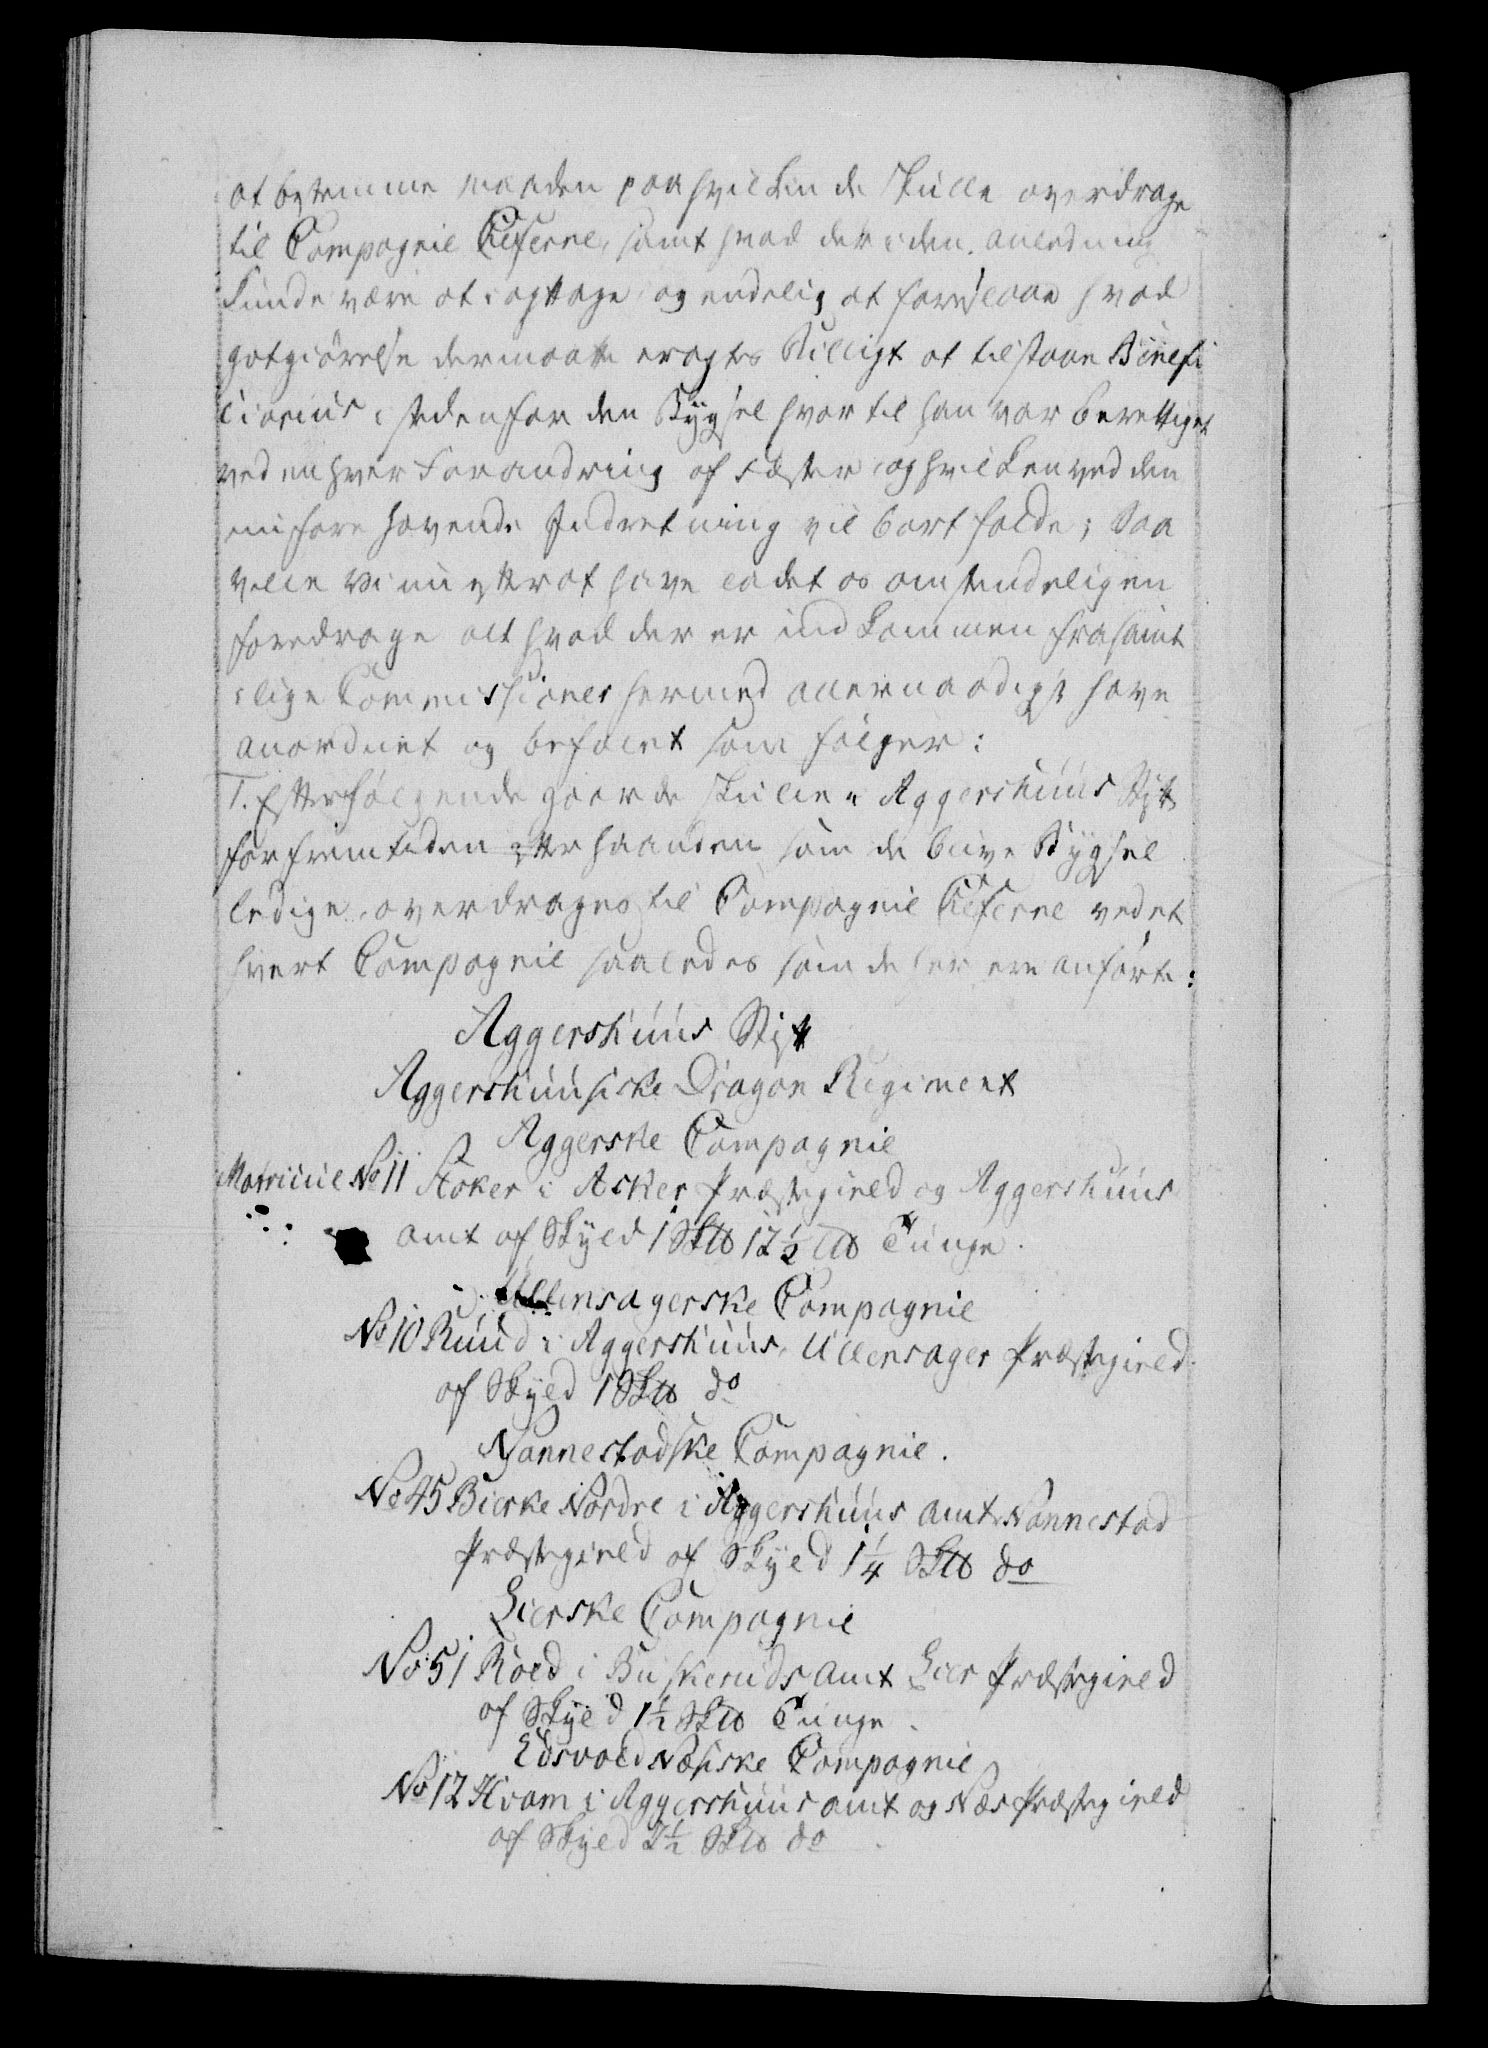 at bestemme maaden paa hvilken de skulle overdrage
til Compagnie Cheferne, samt hvad der i den anledning
kunde være at iagttage og endelig at foreslaae hvad
gotgiørelse dermaatte eragtes billigt at tilstaae Benefi
ciarius i stedenfor den Bygsel hvortil han var berettiget
ved enhver Forandring af Fæster og hvilken ved den
nu forehavende Indretning vil bortfalde; Saa
velle Vi nu efterat have ladet os omstændeligen
foredrage alt hvad der er indkommen fra samt
lige Commissioner hermed allernaadigst have
anordnet og befalet som følger:
1. Efterfølgende gaarde skulle i Aggershuus Stift
for fremtiden efterhaanden som de blive Bygsel
ledige overdrages til Compagnie Cheferne ved et
hvert Compagnie saaledes som de her ere anførte:
Aggershuus Stift
Aggershuusiske Dragon Regiment
Aggerske Compagnie
Matricul No 11 Høker i Asker Præstegield og Aggershuus
amt af Skyld 1 Sk℔ 12½ L℔ Tunge.
Ullensagerske Compagnie
No 10 Ruud i Aggershuus, Ullensager Præstegield
af Skyld 1 Sk℔ do
Nannestadske Compagnie.
No 45 Bierke Nordre i Aggershuus amt Nannestad
Præstegield af Skyld 1¼ Sk℔ do
Lierske Compagnie
No 51 Roed i Buskeruds amt Lier Præstegield
af Skyld 1½ Sk℔ Tunge.
Edsvold Næsiske Compagnie
No 12 Hvam i Aggershuus amt og Næs Præstegield
af Skyld 2½ Sk℔ do